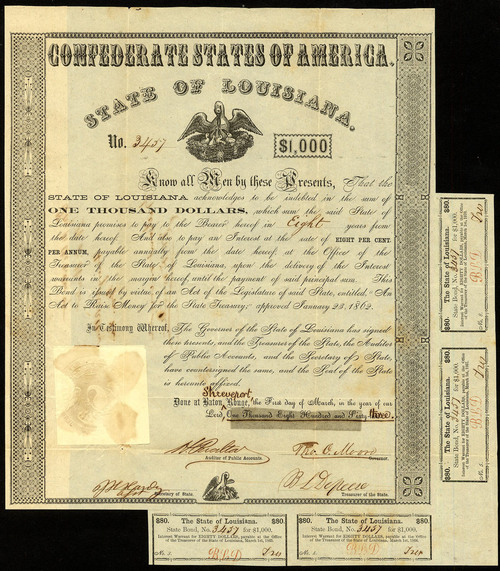 CONFEDERATE STATES OF AMERICA.
STATE OF LOUISIANA.
No. 3457
$1,000
Know all Men by these Presents, That the
STATE OF LOUISIANA acknowledges to be indebted in the sum of
ONE THOUSAND DOLLARS, which sum the said State of
Louisiana promises to pay to the Bearer hereof in Eight years from
the date hereof. And also to pay an Interest at the rate of EIGHT PER CENT.
PER ANNUM, payable annually from the date hereof, at the Office of the
Treasurer of the State of Louisiana, upon the delivery of the Interest
warrants in the margin hereof until the payment of said principal sum. This
Bond is issued by virtue of an Act of the Legislature of said State, entitled "An
Act to Raise Money for the State Treasury," approved January 23, 1862.
In Testimony Whereof, The Governor of the State of Louisiana has signed
these presents, and the Treasurer of the State, the Auditor
of Public Accounts, and the Secretary of State,
have countersigned the same, and the Seal of the State
is hereunto affixed.
Shreveport
Done at Baton Rouge, the First day of March, in the year of our
Lord, One Thousand Eight Hundred and Sixty-three.
Auditor of Public Accounts.
Tho. O. Moore
Governor.
Secretary of State.
Treasurer of the State.
$80. The State of Louisiana. $80.
State Bond, No. 3457 for $1,000.
Interest Warrant for EIGHTY DOLLARS, payable at the Office
of the Treasurer of the State of Louisiana, March 1st,
No.
$80. The State of Louisiana. $80.
State Bond, No. 3457 for $1,000.
Interest Warrant for EIGHTY DOLLARS, payable at the Office
of the Treasurer of the State of Louisiana, March 1st,
No.
$80. The State of Louisiana. $80.
State Bond, No. 3457 for $1,000.
Interest Warrant for EIGHTY DOLLARS, payable at the Office
of the Treasurer of the State of Louisiana, March 1st,
No.
$80. The State of Louisiana. $80.
State Bond, No. 3457 for $1,000.
Interest Warrant for EIGHTY DOLLARS, payable at the Office
of the Treasurer of the State of Louisiana, March 1st,
No.